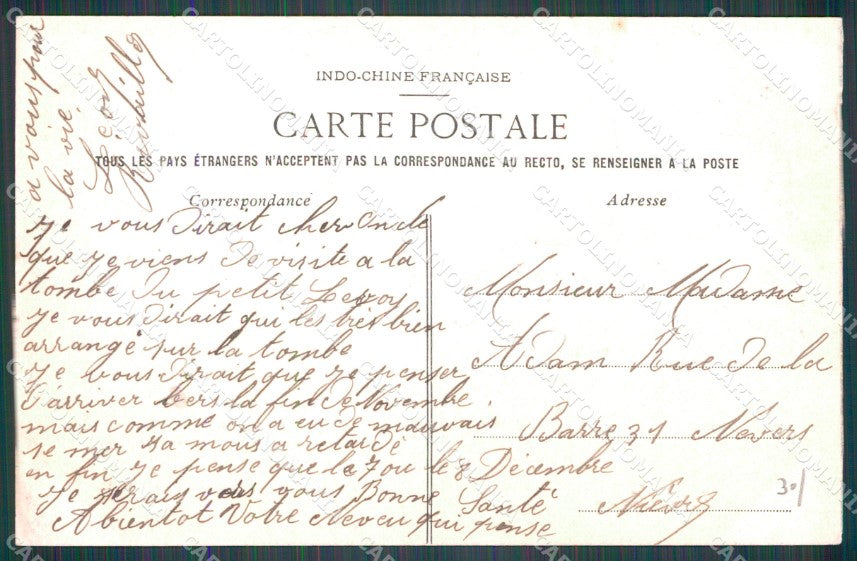 INDO-CHINE FRANÇAISE
CARTE POSTALE
TOUS LES PAYS ÉTRANGERS N'ACCEPTENT PAS LA CORRESPONDANCE AU RECTO, SE RENSEIGNER A LA POSTE
Correspondance
Je vous dirait cher oncle
que je viens de visite a la
tombe du petit Leroy
je vous dirait qui les très bien
arrangé sur la tombe
Je vous dirait que je penser
d'arriver vers la fin de Novembre,
mais comme on a eu de mauvais
se mer sa nous a retardé
en fin je pense que le 7 ou le 8 Décembre
je serais vers vous Bonne Santé
A bientot Votre Neveu qui pense
a vous pour
la vie.
Léon
Adresse
Monsieur Madame
Adam Rue de la
Barre 31 Nevers
Nièvre
30/
CARTOLINOMANIA